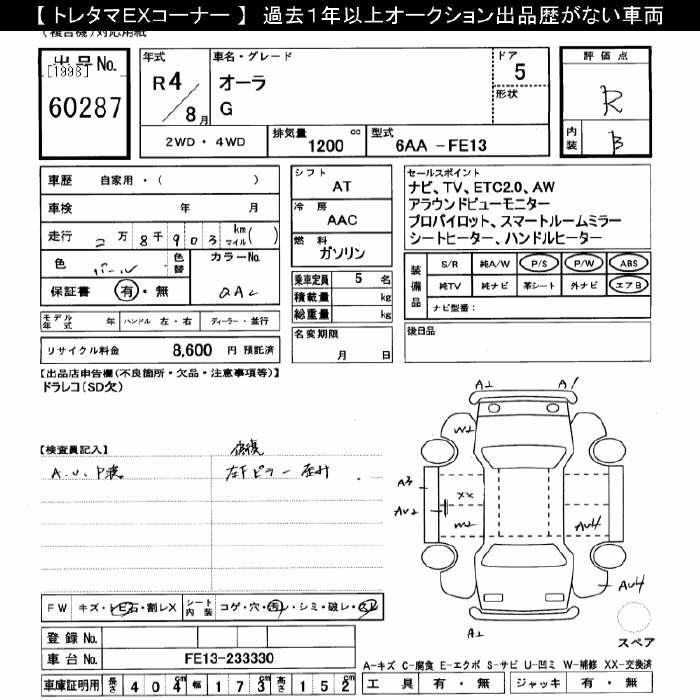 【 トレタマEXコーナー 】 過去1年以上オークション出品歴がない車両
(複合機)対応用紙
出品No.
[1998]
60287
年式
R4
8月
車名・グレード
オーラ
G
ドア
5
形状
2WD ・ 4WD
排気量
1200 cc
型式
6AA -FE13
評価点
R
内装
B
車歴 自家用・( )
車検 年 月
走行 2万8千903 km マイル( )
色 パール
色替
カラーNo.
QAC
保証書 有・無
モデル年式 年 ハンドル 左・右 ディーラー・並行
リサイクル料金 8,600 円 預託済
シフト
AT
冷房
AAC
燃料
ガソリン
乗車定員 5 名
積載量 kg
総重量 kg
名変期限
月 日
セールスポイント
ナビ、TV、ETC2.0、AW
アラウンドビューモニター
プロパイロット、スマートルームミラー
シートヒーター、ハンドルヒーター
装備品
S/R 純A/W P/S P/W ABS
純TV 純ナビ 革シート 外ナビ エアB
ナビ型番:
後日品
【出品店申告欄(不良箇所・欠品・注意事項等)】
ドラレコ(SD欠)
【検査員記入】
A.U.P
修復
左下ピラー
A2
A1
W2
A3
XX
AU2
M2
AU4
AU4
A2
スペア
FW キズ・トビ石・割レX シート内装 コゲ・穴・汚レ・シミ・破レ・スレ
登録No.
車台No. FE13-233330
車庫証明用 長さ 404cm 幅 173cm 高さ 152cm
A-キズ C-腐食 E-エクボ S-サビ U-凹ミ W-補修 XX-交換済
工具 有・無 ジャッキ 有・無